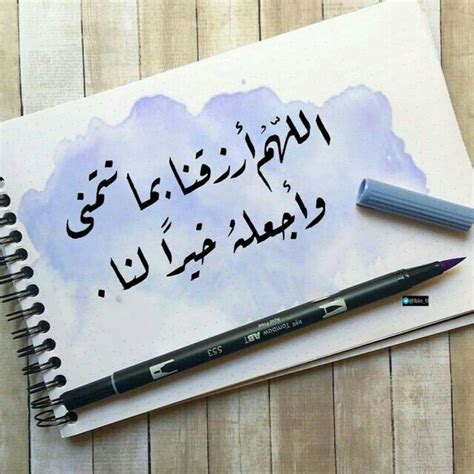 اللّهُم أرزقنا بما نتمنى
وأجعلهُ خيراً لنا .
Tombow ABT
553